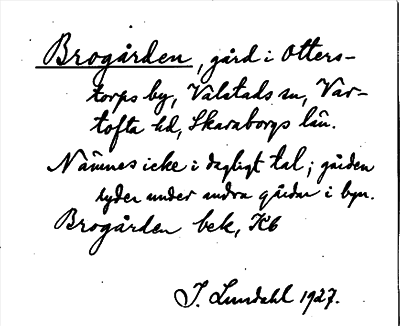 Brogården, gård i Otters-
torps by, Valstads sn, Var-
tofta hd, Skaraborgs län.
Nämnes icke i dagligt tal; gården
lyder under andra gårdar i byn.
Brogården bek, K6
I. Lundahl 1927.